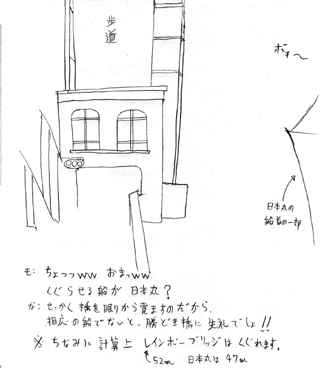 歩道
ボォ〜
日本丸の
船首の一部
モ: ちょっっww おまっww
くぐらせる船が 日本丸?
か: せっかく橋を眠りから覚ますのだから、
相応の船でないと、勝どき橋に失礼でしょ!!
※ ちなみに計算上 レインボーブリッジはくぐれます。
52m 日本丸は 47m